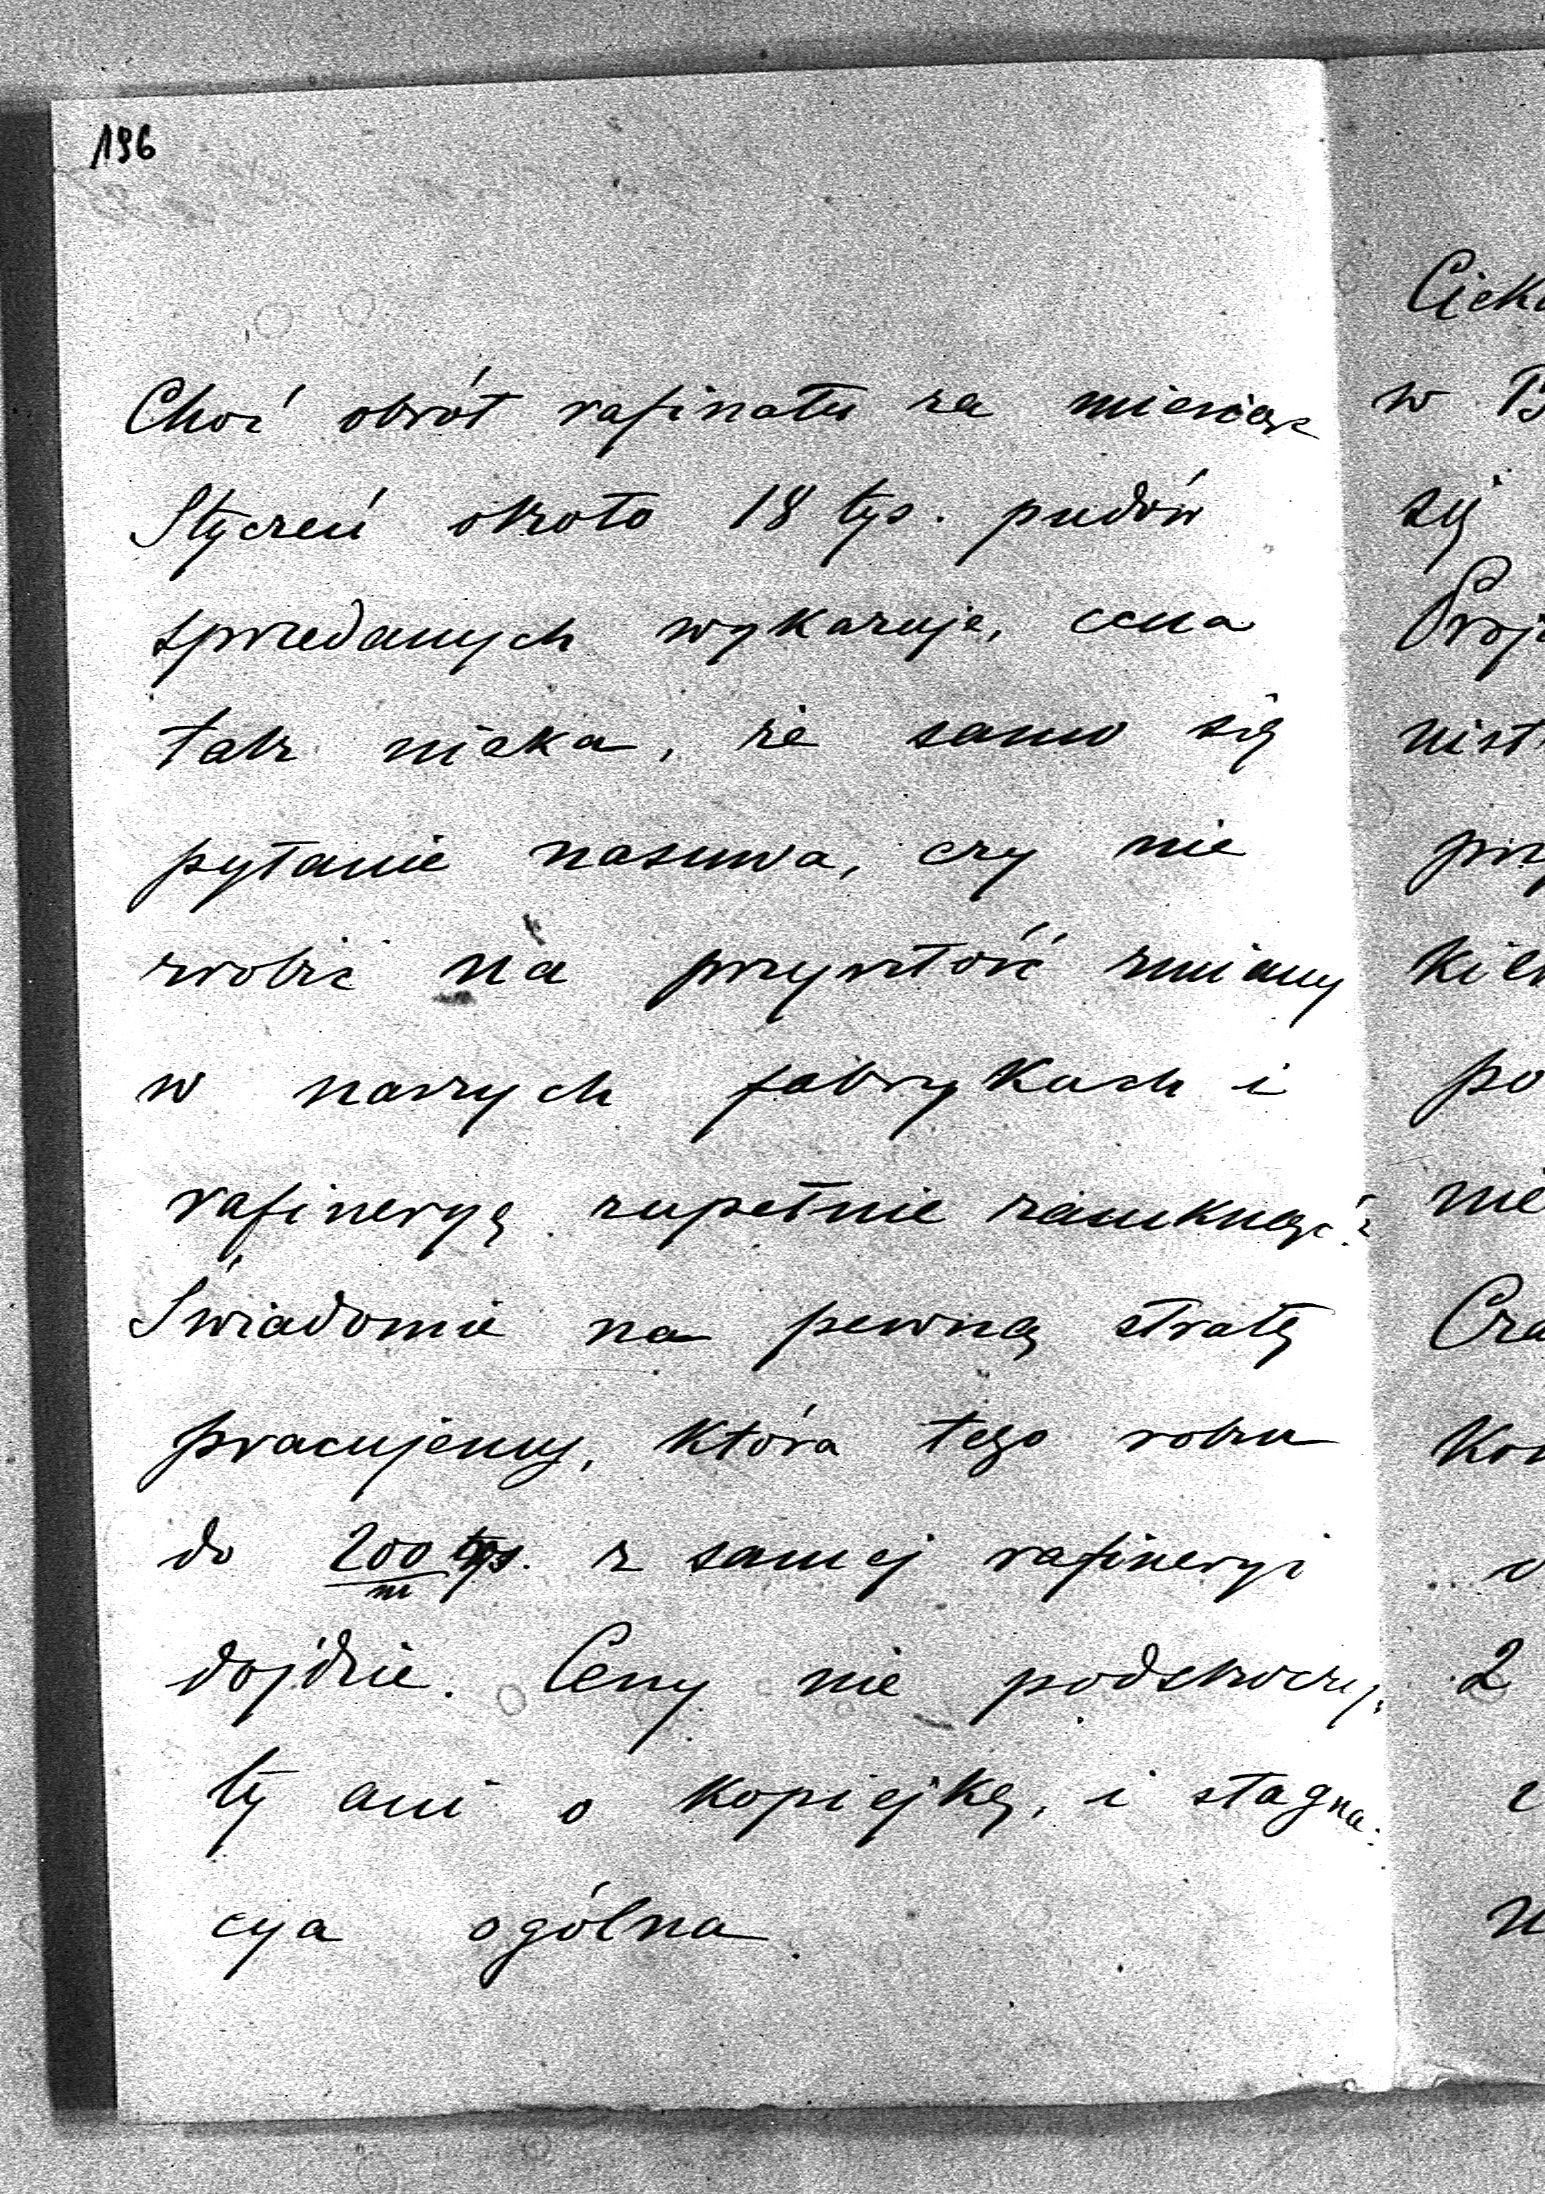 196
Choć obrót rafinatu za miesiąc
Styczeń około 18 tys. pudów
sprzedanych wykazuje, cena
tak niska, że samo się
pytanie nasuwa, czy nie
zrobić na przyszłość zmiany
w naszych fabrykach i
rafineryę zupełnie zamknąć?
Świadomie na pewną stratę
pracujemy, która tego roku
do 200/m tys. z samej rafineryi
dojdzie. Ceny nie podskoczy-
ły ani o kopiejkę, i stagna-
cya ogólna.
w
się
2